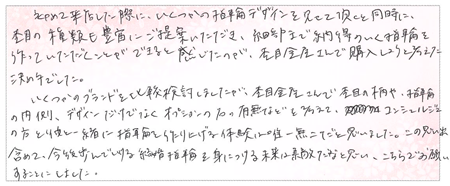 初めて来店した際に、いくつかの指輪デザインを見せて頂くと同時に、
木目の種類も豊富にご提案いただき、細部まで納得のいく指輪を
作っていただくことができると感じたのが、杢目金屋さんで購入しようと考えた
決め手でした。
いくつかのブランドをも比較検討しましたが、杢目金屋さんで木目の柄や、指輪
の内側、デザインだけでなくオプションの石の有無などを考えて、コンシェルジュ
の方と作と一緒に指輪を作り上げる体験は唯一無二だと思いました。この思い出
含めて、今後歩んでいける結婚指輪を身につける未来は素敵だなと思い、こちらでお願い
することにしました。